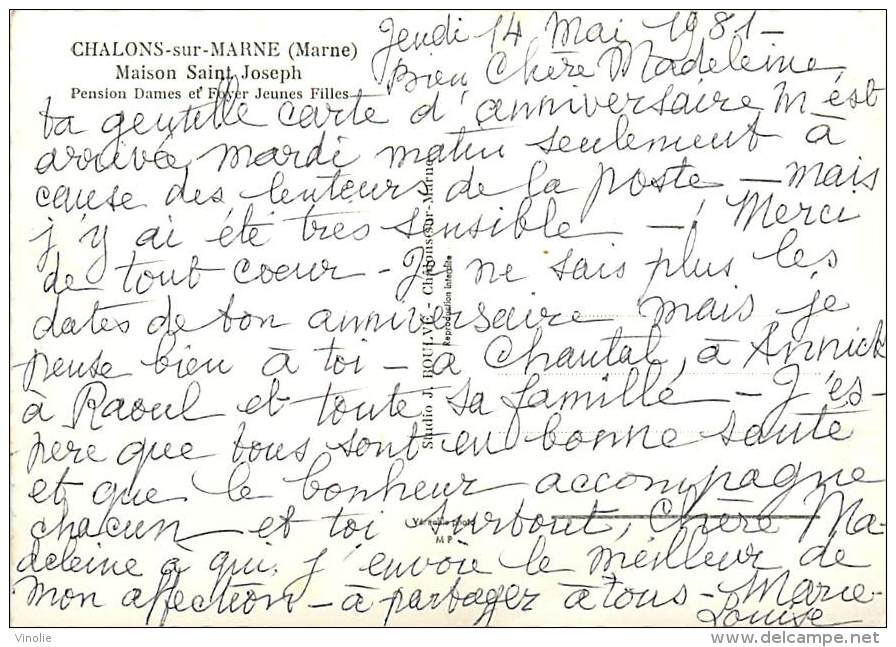 CHALONS-sur-MARNE (Marne)
Maison Saint Joseph
Pension Dames et Foyer Jeunes Filles
Jeudi 14 Mai 1981 -
Bien Chère Madeleine,
ta gentille carte d'anniversaire m'est
arrivée mardi matin seulement à
cause des lenteurs de la poste - mais
j'y ai été très sensible - Merci
de tout coeur - Je ne sais plus les
dates de ton anniversaire mais je
pense bien à toi - à Chantal, à Annick
à Raoul et toute sa famille - J'es-
père que tous sont en bonne santé
et que le bonheur accompagne
chacun - et toi surtout, Chère Ma-
deleine à qui j'envoie le meilleur de
mon affection - à partager à tous - Marie-
Louise
Studio J. BOULVE - Chalons-sur-Marne
Reproduction interdite
Véritable photo
M P
Vinolie
www.delcampe.net